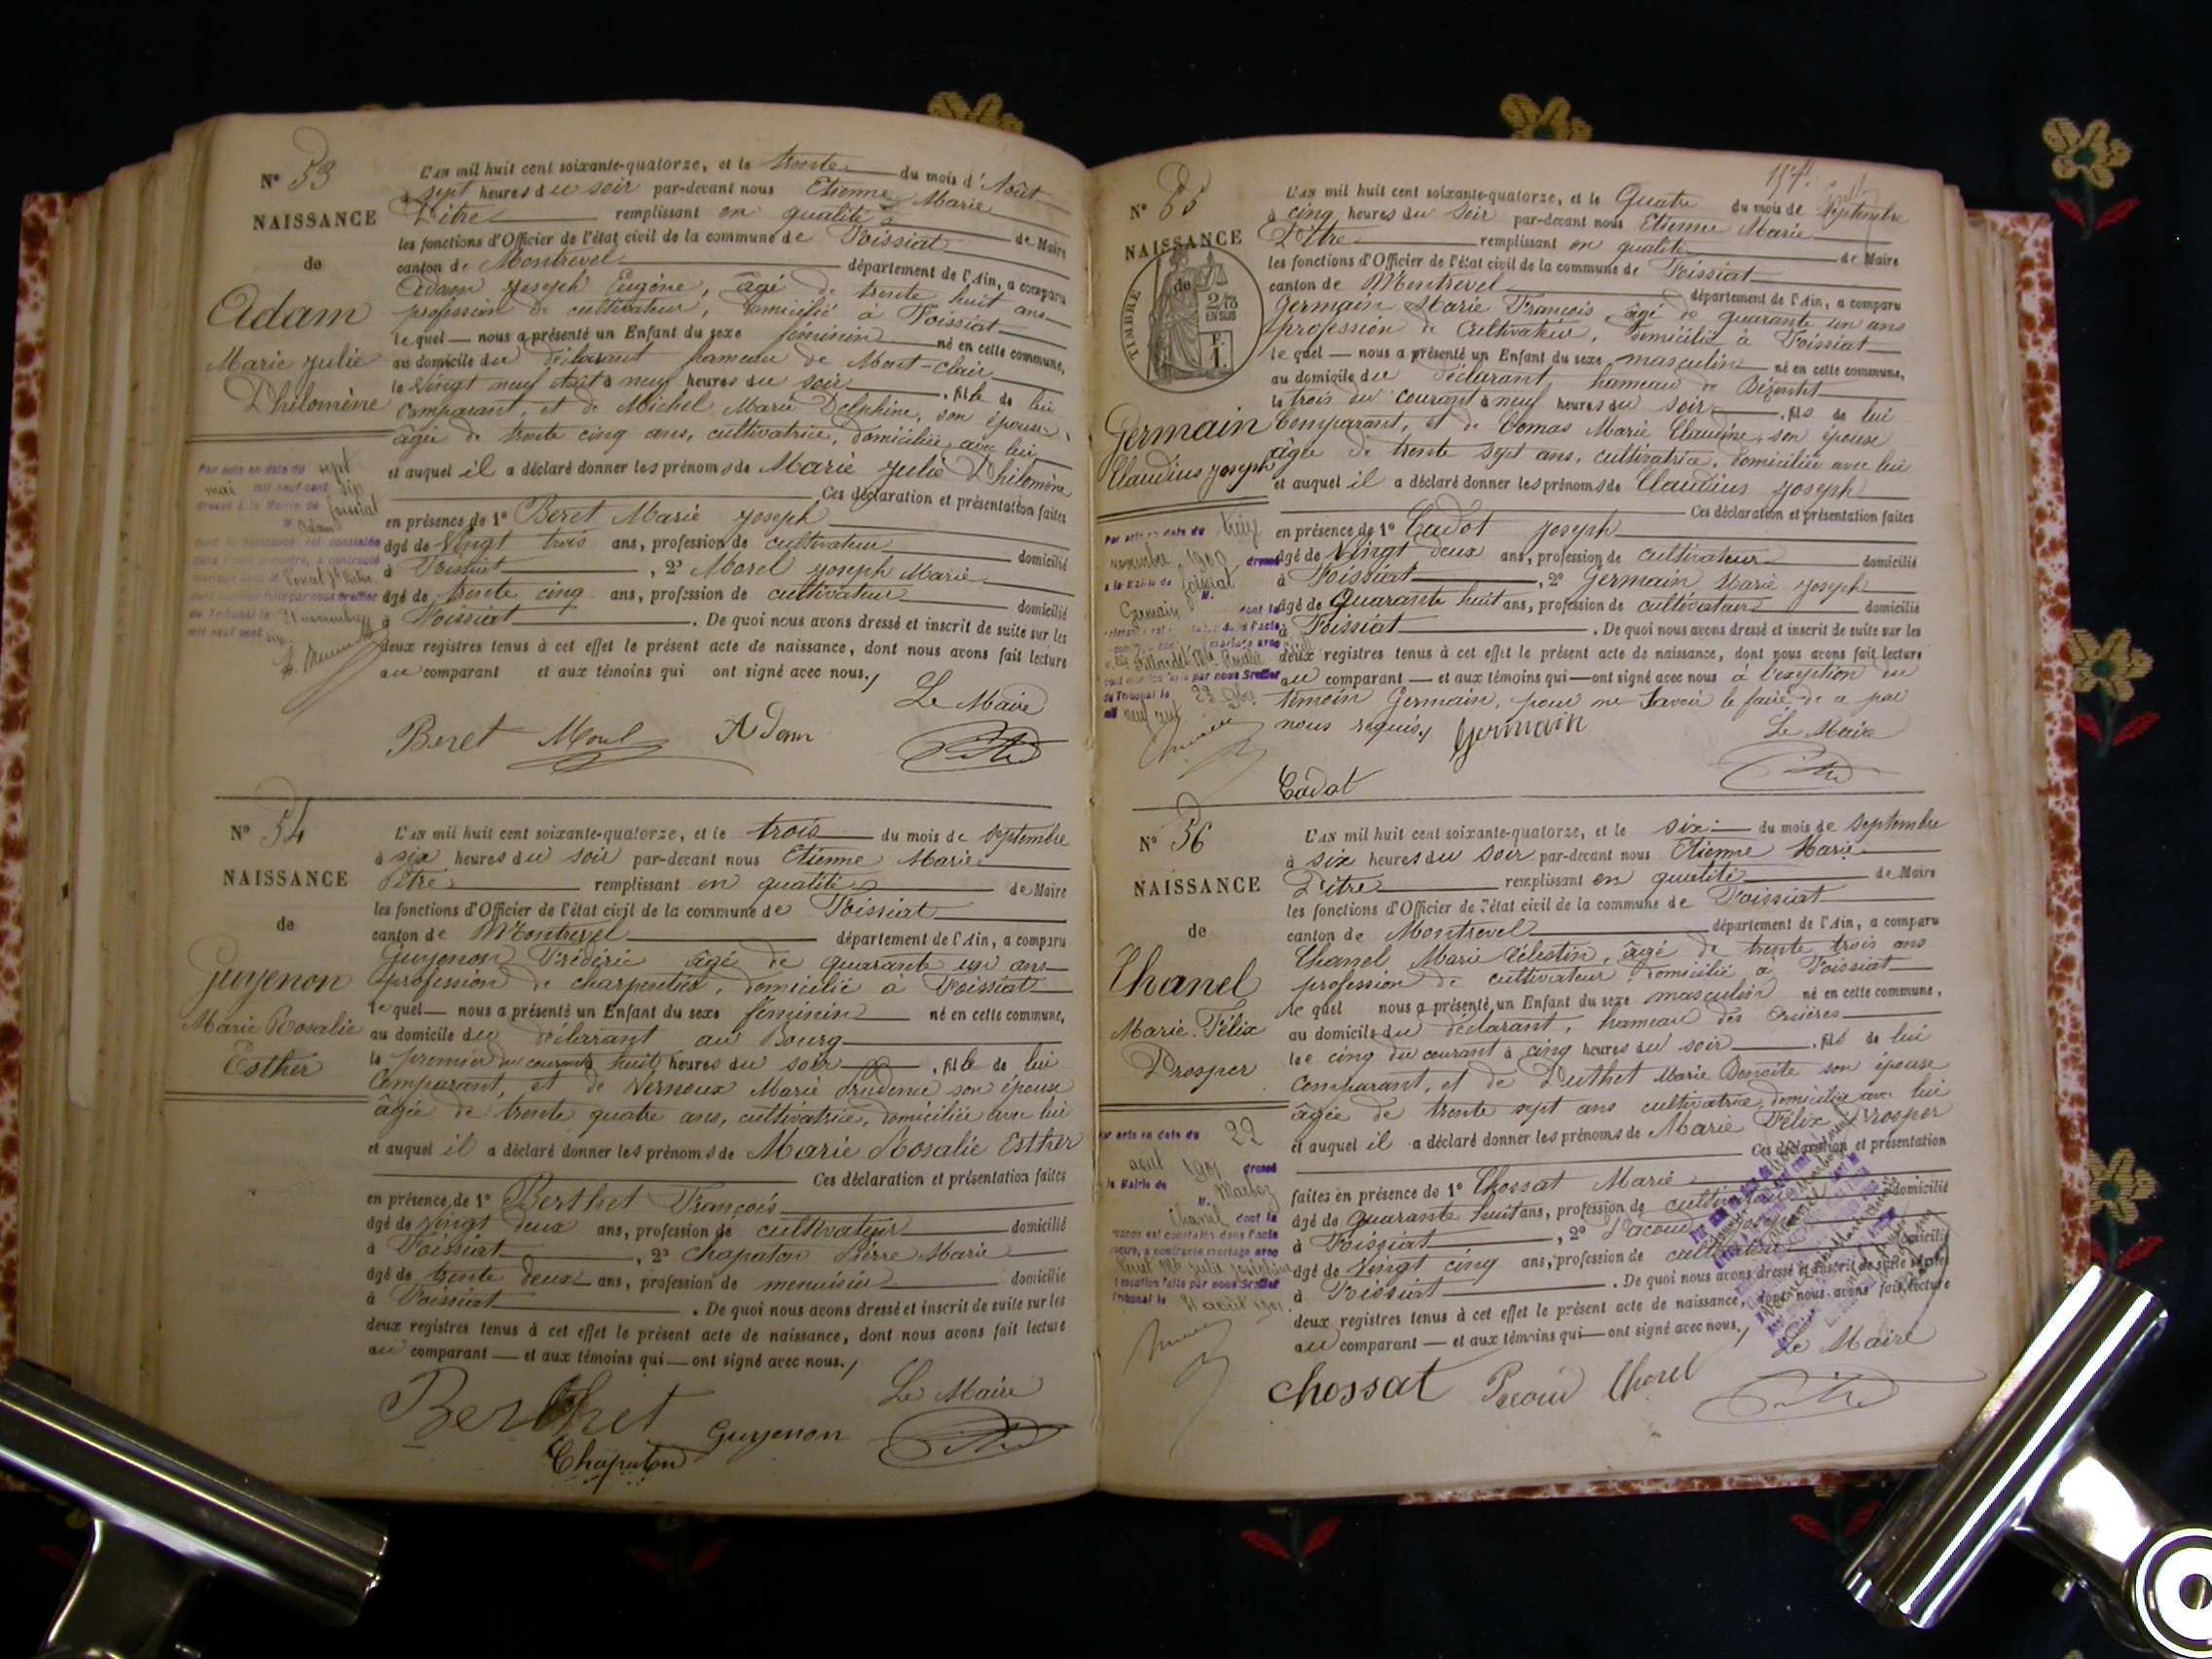 N° 53
NAISSANCE
de
Adam
Marie Julie
Philomène
L'an mil huit cent soixante-quatorze, et le trente du mois d'Août
à sept heures du soir par-devant nous Etienne Marie
Pitre remplissant en qualité de Maire
les fonctions d'Officier de l'état civil de la commune de Foissiat
canton de Montrevel département de l'Ain, a comparu
Adam Joseph Eugène, âgé de trente huit ans
profession de cultivateur, domicilié à Foissiat
lequel nous a présenté un Enfant du sexe féminin né en cette commune,
au domicile du déclarant hameau de Mont-clair
le Vingt neuf Août à neuf heures du soir, fille de lui
comparant, et de Michel Marie Delphine, son épouse,
âgée de trente cinq ans, cultivatrice, domiciliée avec lui
et auquel il a déclaré donner les prénoms de Marie Julie Philomène
Ces déclaration et présentation faites
en présence de 1° Beret Marie Joseph
âgé de Vingt trois ans, profession de cultivateur domicilié
à Foissiat, 2° Morel Joseph Marie
âgé de trente cinq ans, profession de cultivateur domicilié
à Foissiat. De quoi nous avons dressé et inscrit de suite sur les
deux registres tenus à cet effet le présent acte de naissance, dont nous avons fait lecture
au comparant et aux témoins qui ont signé avec nous.
Le Maire
Beret Morel Adam
Par acte en date du sept
mai mil neuf cent six
dressé à la Mairie de Foissiat
M. Adam
du Tribunal le 21 novembre
mil neuf cent six
N° 54
NAISSANCE
de
Guyenon
Marie Rosalie
Esther
L'an mil huit cent soixante-quatorze, et le trois du mois de Septembre
à six heures du soir par-devant nous Etienne Marie
Pitre remplissant en qualité de Maire
les fonctions d'Officier de l'état civil de la commune de Foissiat
canton de Montrevel département de l'Ain, a comparu
Guyenon Frédéric âgé de quarante un ans
profession de charpentier, domicilié à Foissiat
lequel nous a présenté un Enfant du sexe féminin né en cette commune,
au domicile du déclarant au Bourg
le premier du courant à huit heures du soir, fille de lui
Comparant, et de Vernoux Marie Prudence son épouse
âgée de trente quatre ans, cultivatrice, domiciliée avec lui
et auquel il a déclaré donner les prénoms de Marie Rosalie Esther
Ces déclaration et présentation faites
en présence de 1° Berthet François
âgé de Vingt deux ans, profession de cultivateur domicilié
à Foissiat, 2° Chapaton Pierre Marie
âgé de trente deux ans, profession de menuisier domicilié
à Foissiat. De quoi nous avons dressé et inscrit de suite sur les
deux registres tenus à cet effet le présent acte de naissance, dont nous avons fait lecture
au comparant et aux témoins qui ont signé avec nous.
Le Maire
Berthet Guyenon
Chapaton
154.
N° 55
NAISSANCE
de
TIMBRE
2/10
EN SUS
Germain
Claudius Joseph
L'an mil huit cent soixante-quatorze, et le Quatre du mois de Septembre
à cinq heures du soir par-devant nous Etienne Marie
Pitre remplissant en qualité de Maire
les fonctions d'Officier de l'état civil de la commune de Foissiat
canton de Montrevel département de l'Ain, a comparu
Germain Marie François, âgé de quarante un ans
profession de Cultivateur, domicilié à Foissiat
lequel nous a présenté un Enfant du sexe masculin né en cette commune,
au domicile du déclarant hameau de
le trois du courant à neuf heures du soir, fils de lui
Comparant, et de Comas Marie Claudine, son épouse
âgée de trente sept ans, cultivatrice, domiciliée avec lui
et auquel il a déclaré donner les prénoms de Claudius Joseph
Ces déclaration et présentation faites
en présence de 1° Cadot Joseph
âgé de Vingt deux ans, profession de cultivateur domicilié
à Foissiat, 2° Germain Marie Joseph
âgé de Quarante huit ans, profession de cultivateur domicilié
à Foissiat. De quoi nous avons dressé et inscrit de suite sur les
deux registres tenus à cet effet le présent acte de naissance, dont nous avons fait lecture
au comparant et aux témoins qui ont signé avec nous à l'exception du
témoin Germain, pour ne savoir le faire de a par
nous requis. Germain
Le Maire
Cadot
Par acte en date du
novembre 1900 dressé
à la Mairie de Foissiat
M.
Germain dont la
par nous Greffier
du Tribunal le 23
mil neuf cent
N° 56
NAISSANCE
de
Chanel
Marie Félix
Prosper
L'an mil huit cent soixante-quatorze, et le six du mois de Septembre
à six heures du soir par-devant nous Etienne Marie
Pitre remplissant en qualité de Maire
les fonctions d'Officier de l'état civil de la commune de Foissiat
canton de Montrevel département de l'Ain, a comparu
Chanel Marie Célestin, âgé de trente trois ans
profession de cultivateur, domicilié à Foissiat
lequel nous a présenté un Enfant du sexe masculin né en cette commune,
au domicile du déclarant, hameau des
le cinq du courant à cinq heures du soir, fils de lui
comparant, et de Puthet Marie Benoite son épouse
âgée de trente sept ans cultivatrice, domiciliée avec lui
et auquel il a déclaré donner les prénoms de Marie Félix Prosper
Ces déclaration et présentation
faites en présence de 1° Chossat Marie
âgé de quarante huit ans, profession de cultivateur domicilié
à Foissiat, 2° Pacoud
âgé de Vingt cinq ans, profession de cultivateur domicilié
à Foissiat. De quoi nous avons dressé et inscrit de suite sur les
deux registres tenus à cet effet le présent acte de naissance, dont nous avons fait lecture
au comparant et aux témoins qui ont signé avec nous.
Le Maire
Chossat Pacoud Chanel
Par acte en date du 22
août 1901 dressé
la Mairie de
M.
Chanel dont la
naissance est constatée dans l'acte
a contracté mariage avec
par nous Greffier
Tribunal le